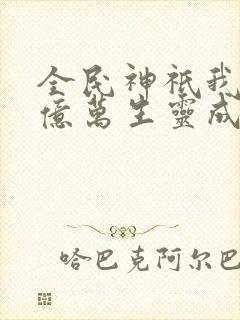 全民神祇我
億萬生靈成
哈巴克阿尔巴